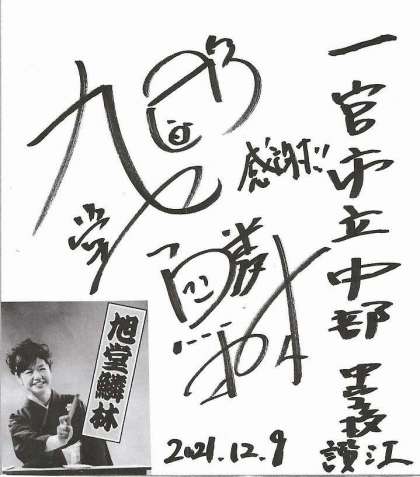 一宮市立中部中学校
讃江
感謝だ!!
旭堂
鱗林
2021.12.9
旭堂鱗林